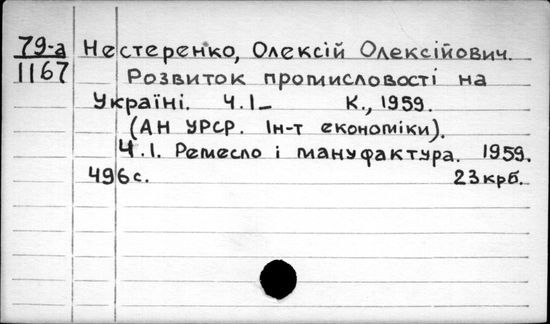 79-а Нестеренко, Олексій Олексійович.
1167 Розвиток промисловості на
Україні. Ч.І— К., 1959.
(АН УРСР. Ін-т економіки).
Ч.І. Ремесло і мануфактура. 1959.
496 с. 23 крб.